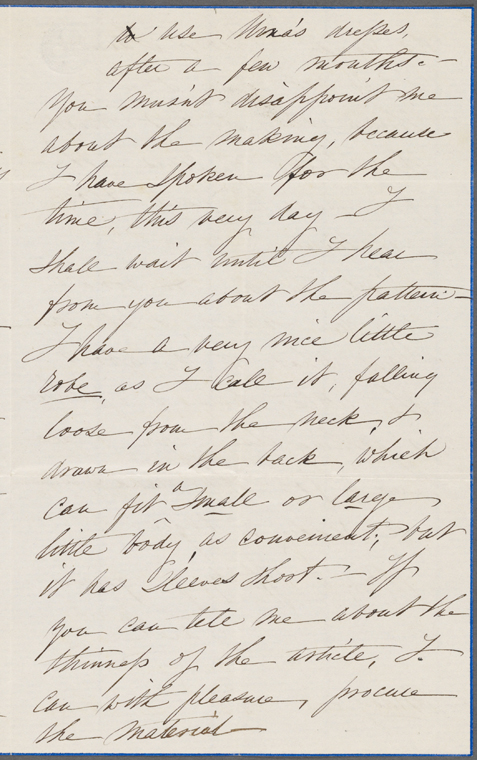 to use Una's dresses,
after a few months. –
You musn't disappoint me
about the making, because
I have spoken for the
time, this very day – I
shall wait until I hear
from you about the pattern –
I have a very nice little
robe, as I call it, falling
loose from the neck, &
drawn in the back, which
can fit a small or large
little body, as convenient; but
it has sleeves short. – If
you can tell me about the
thinness of the article, I
can with pleasure, procure
the material